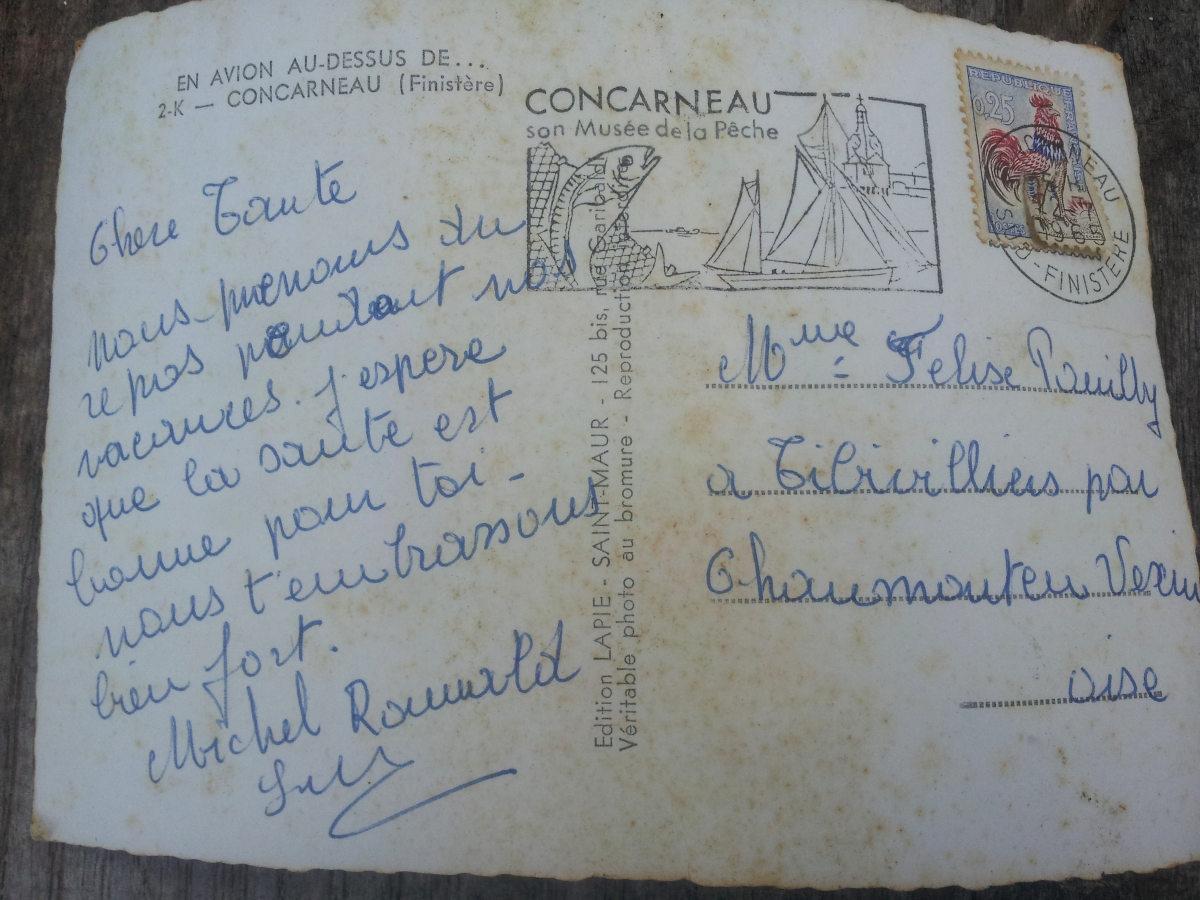 EN AVION AU-DESSUS DE...
2-K — CONCARNEAU (Finistère)
CONCARNEAU
son Musée de la Pêche
REPUBLIQUE FRANÇAISE
0,25
CONCARNEAU
SUD-FINISTERE
Chere Tante
nous prenons du
repos pendant nos
vacances. j'espere
que la sante est
bonne pour toi -
nous t'embrassons
bien fort.
Michel Romuald
Edition LAPIE - SAINT-MAUR - 125 bis, rue Garibaldi
Véritable photo au bromure - Reproduction interdite
Mme Felise Pouilly
a Tibivilliers par
Chaumont en Vexin
oise